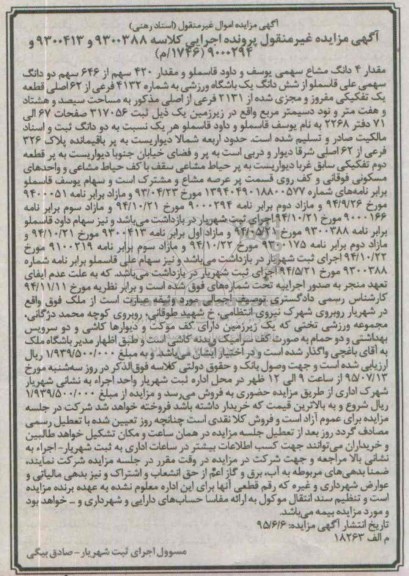 آگهی مزایده اموال غیرمنقول (اسناد رهنی)
آگهی مزایده غیرمنقول پرونده اجرایی کلاسه ۹۳۰۰۳۸۸ و ۹۳۰۰۴۱۳ و
۹۰۰۰۲۹۴ (۱۷۴۶/م)
مقدار ۴ دانگ مشاع سهمی یوسف و داود قاسملو و مقدار ۴۲۰ سهم از ۶۴۶ سهم دو دانگ
سهمی علی قاسملو از شش دانگ یک باشگاه ورزشی به شماره ۴۱۳۲ فرعی از ۶۲ اصلی قطعه
یک تفکیکی مفروز و مجزی شده از ۲۱۳۱ فرعی از اصلی مذکور به مساحت سیصد و هشتاد
و هفت متر و نود دسیمتر مربع واقع در زیرزمین یک ذیل ثبت ۳۱۷۰۵۶ صفحات ۶۷ الی
۷۱ دفتر ۲۲۶۸ به نام یوسف قاسملو و داود قاسملو هر یک نسبت به دو دانگ ثبت و اسناد
مالکیت صادر و تسلیم شده است. حدود اربعه شمالا دیواریست به پر باقیمانده پلاک ۳۲۶
فرعی از ۶۲ اصلی شرقا دیوار و دربی است به پر و فضای خیابان جنوبا دیواریست به پر قطعه
دوم تفکیکی سابق غربا دیواریست به پر حیاط مشاعی سقف با کف حیاط مشاعی و واحدهای
مسکونی فوقانی و کف روی قسمت پر عرصه مشاع و مشترک است و سهام یوسف قاسملو
برابر نامه‌های شماره ۱۳۹۴۰۴۹۰۱۸۸۰۰۵۷۷ مورخ ۹۳/۰۴/۲۳ و مازاد برابر نامه ۹۴۰۰۰۵۱
مورخ ۹۴/۹/۲۶ و مازاد دوم برابر نامه ۹۰۰۰۲۹۴ مورخ ۹۴/۱۰/۲۱ و مازاد سوم برابر نامه
۹۰۰۰۱۶۶ مورخ ۹۴/۱۰/۲۱ اجرای ثبت شهریار در بازداشت می‌باشد و نیز سهام داود قاسملو
برابر نامه ۹۳۰۰۳۸۸ مورخ ۹۴/۰۵/۲۱ و مازاد اول برابر نامه ۹۳۰۰۴۱۳ مورخ ۹۴/۱۰/۲۱ و
مازاد دوم برابر نامه ۹۳۰۰۱۷۵ مورخ ۹۴/۱۰/۲۲ و مازاد سوم برابر نامه ۹۱۰۰۲۱۹ مورخ
۹۴/۱۰/۲۲ اجرای ثبت شهریار در بازداشت می‌باشد و نیز سهام علی قاسملو برابر نامه شماره
۹۳۰۰۳۸۸ مورخ ۹۴/۵/۲۱ اجرای ثبت شهریار در بازداشت می‌باشد. که به علت عدم ایفای
تعهد منجر به صدور اجراییه تحت شماره‌های فوق شده است و برابر نظریه مورخ ۹۴/۱۱/۱۱
کارشناس رسمی دادگستری توصیف اجمالی مورد وثیقه عبارت است از ملک فوق واقع
در شهریار روبروی شهرک نیروی انتظامی، خ شهید طوقانی، روبروی کوچه محمد دژگانی،
مجموعه ورزشی تختی که یک زیرزمین دارای کف موکت و دیوارها کاشی و دو سرویس
بهداشتی و دو حمام به صورت کف سرامیک و بدنه کاشی است و طبق اظهار مدیر باشگاه ملک
به آقای باغچی واگذار شده است و در اختیار ایشان می‌باشد. و به مبلغ ۱/۹۳۹/۵۰۰/۰۰۰ ریال
ارزیابی شده است و جهت وصول بانک و حقوق دولتی کلاسه فوق‌الذکر در روز سه‌شنبه مورخ
۹۵/۰۷/۱۳ از ساعت ۹ الی ۱۲ ظهر در محل اداره ثبت شهریار واحد اجراء به نشانی شهریار
شهرک اداری از طریق مزایده حضوری به فروش می‌رسد و مزایده از مبلغ ۱/۹۳۹/۵۰۰/۰۰۰
ریال شروع و به بالاترین قیمت که خریدار داشته باشد فروخته خواهد شد شرکت در جلسه
مزایده برای عموم آزاد است و فروش کلا نقدی است چنانچه روز تعیین شده با تعطیل رسمی
مصادف گردد روز بعد از تعطیل جلسه مزایده در همان ساعت و مکان تشکیل خواهد طالبین
و خریداران می‌توانند جهت کسب اطلاعات بیشتر در ساعات اداری به ثبت شهریار- اجراء به
نشانی بالا مراجعه و جهت شرکت در مزایده در وقت مقرر در جلسه مزایده شرکت نمایند،
ضمنا بدهی‌های مربوطه به آب، برق و گاز اعم از حق انشعاب و اشتراک و نیز بدهی مالیاتی و
عوارض شهرداری و غیره که رقم قطعی آنها برای این اداره معلوم نشده به عهده برنده مزایده
است و تنظیم سند انتقال موکول به ارائه مفاصا حساب‌های دارایی و شهرداری و ... خواهد بود
و مورد مزایده بیمه می‌باشد.
تاریخ انتشار آگهی مزایده: ۹۵/۶/۶
م الف ۱۸۲۶۳
مسوول اجرای ثبت شهریار- صادق بیگی